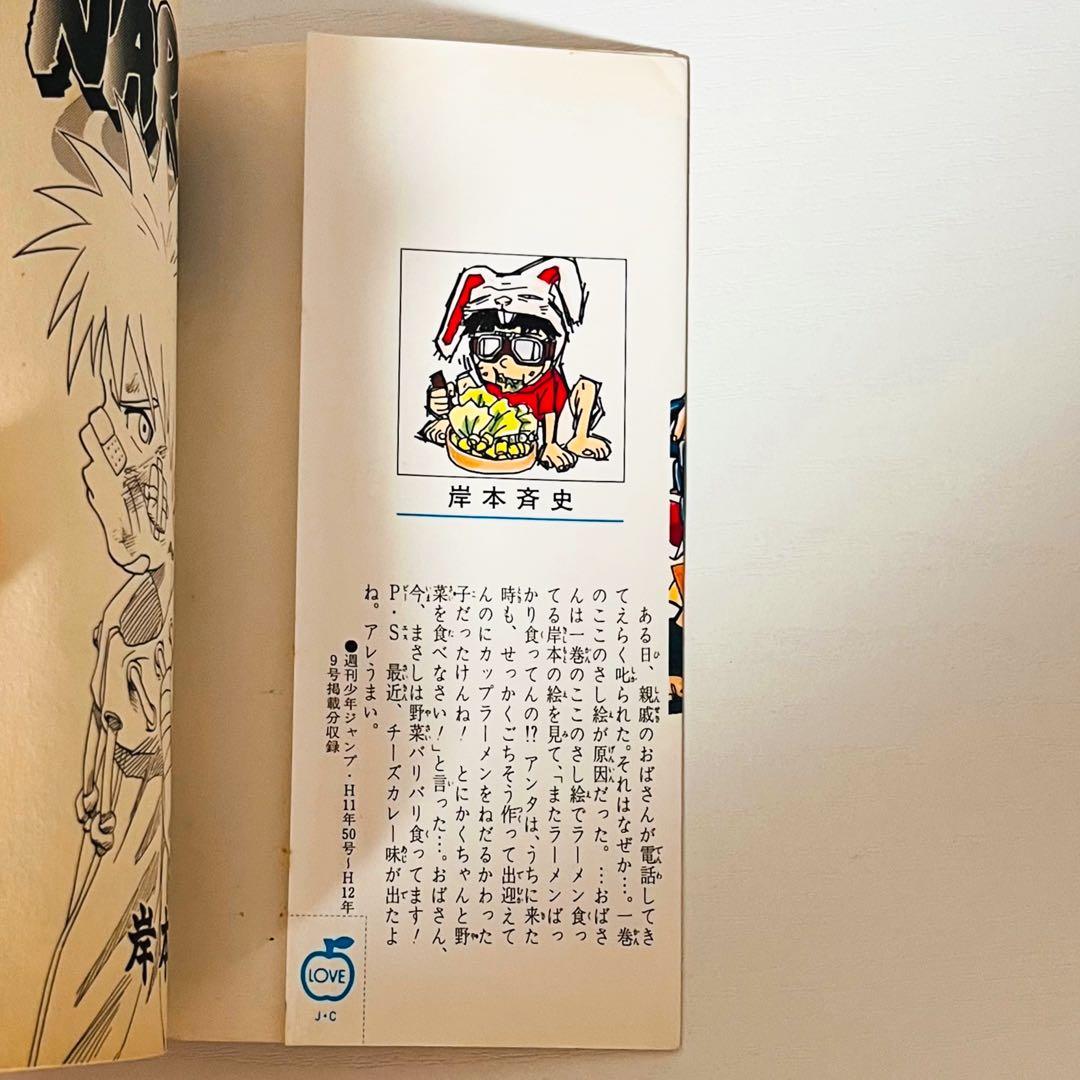 NAR
岸本
岸本斉史
ある日、親戚のおばさんが電話してき
てえらく叱られた。それはなぜか…。一巻
のここのさし絵が原因だった。…おばさ
んは一巻のここのさし絵でラーメン食っ
てる岸本の絵を見て、「またラーメンばっ
かり食ってんの!? アンタは、うちに来た
時も、せっかくごちそう作って出迎えて
んのにカップラーメンをねだるかわった
子だったけんね! とにかくちゃんと野
菜を食べなさい!」と言った…。おばさん、
今、まさしは野菜バリバリ食ってます!
P・S 最近、チーズカレー味が出たよ
ね。アレうまい。
●週刊少年ジャンプ・H11年50号～H12年
9号掲載分収録
LOVE
J・C